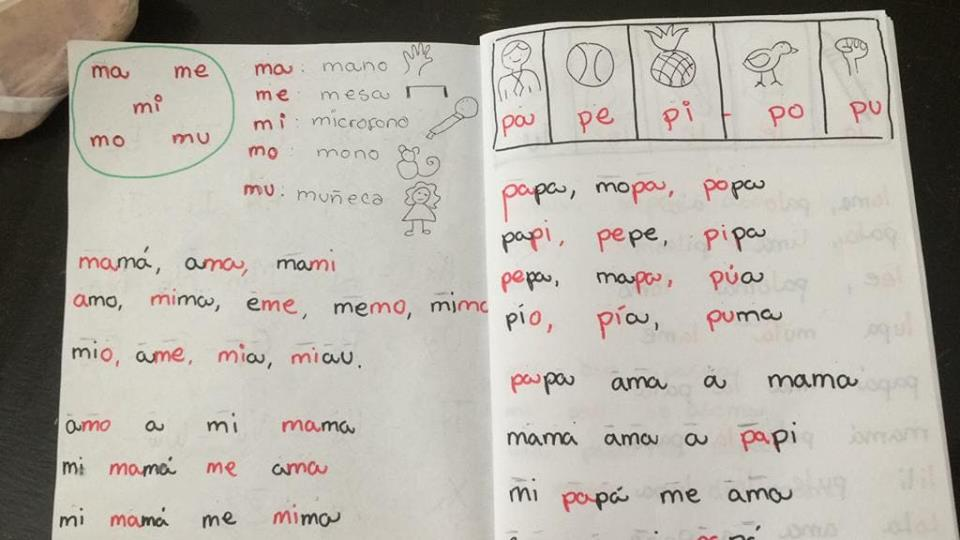 ma me
mi
mo mu
ma: mano
me: mesa
mi: microfono
mo: mono
mu: muñeca
mamá, ama, mami
amo, mima, eme, memo, mimo
mio, ame, mia, miau.
amo a mi mama
mi mamá me ama
mi mamá me mima
pa pe pi - po pu
papa, mopa, popa
papi, pepe, pipa
pepa, mapa, púa
pío, pía, puma
papa ama a mama
mamá ama a papi
mi papá me ama